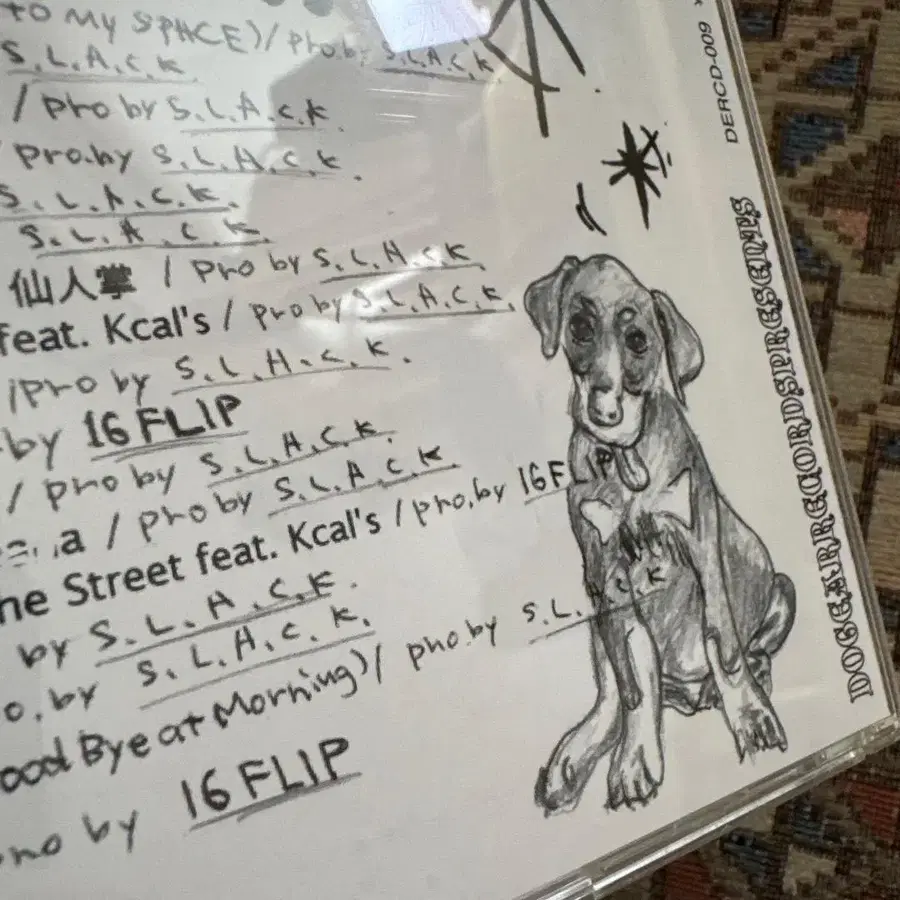 TO MY SPACE)/ pro.by S.L.A.C.K
S.L.A.C.K
/ pro by S.L.A.C.K
pro.by S.L.A.C.K.
S.L.A.C.K.
S.L.A.C.K.
仙人掌 / pro by S.L.A.C.K
feat. Kcal's / pro by S.L.A.C.K.
/pro by S.L.A.C.K.
by 16FLIP
/ pro by S.L.A.C.K.
a / pro by S.L.A.C.K
he Street feat. Kcal's / pro.by 16FLIP
by S.L.A.C.K.
o.by S.L.A.C.K.
ood Bye at Morning)/ pro.by S.L.A.C.K
pro by 16FLIP
DERCD-009
DOGEARRECORDSPRESENTS